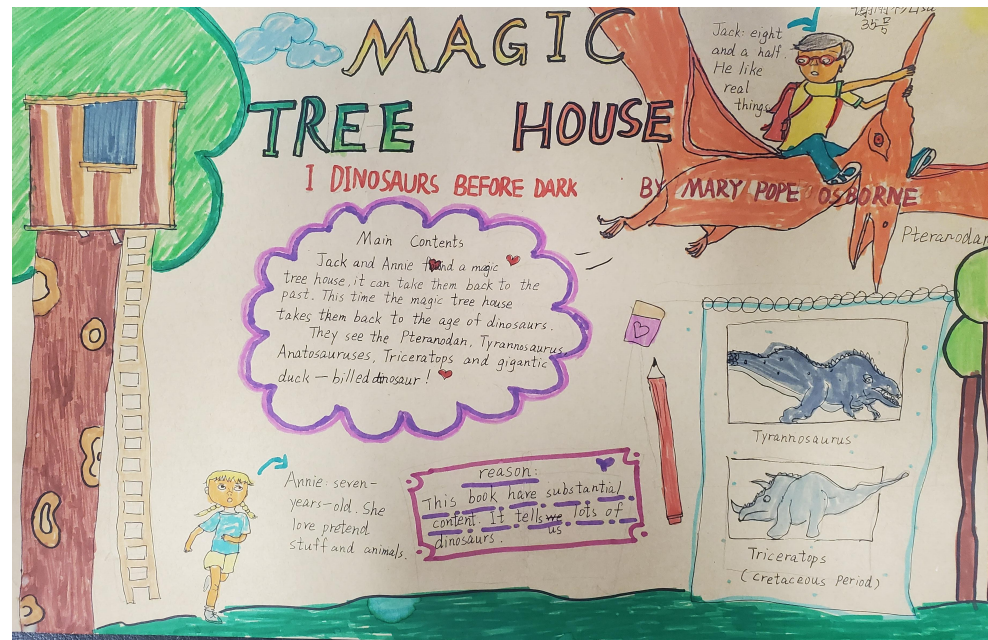 MAGIC
TREE HOUSE
1 DINOSAURS BEFORE DARK BY MARY POPE OSBORNE
35号
Jack: eight
and a half.
He like
real
things.
Pteranodan
Main Contents
Jack and Annie found a magic
tree house, it can take them back to the
past. This time the magic tree house
takes them back to the age of dinosaurs.
They see the Pteranodan, Tyrannosaurus,
Anatosauruses, Triceratops and gigantic
duck — billed dinosaur!
Tyrannosaurus
Triceratops
(Cretaceous Period)
Annie: seven-
years-old. She
love pretend
stuff and animals.
reason:
This book have substantial
content. It tells us lots of
dinosaurs.